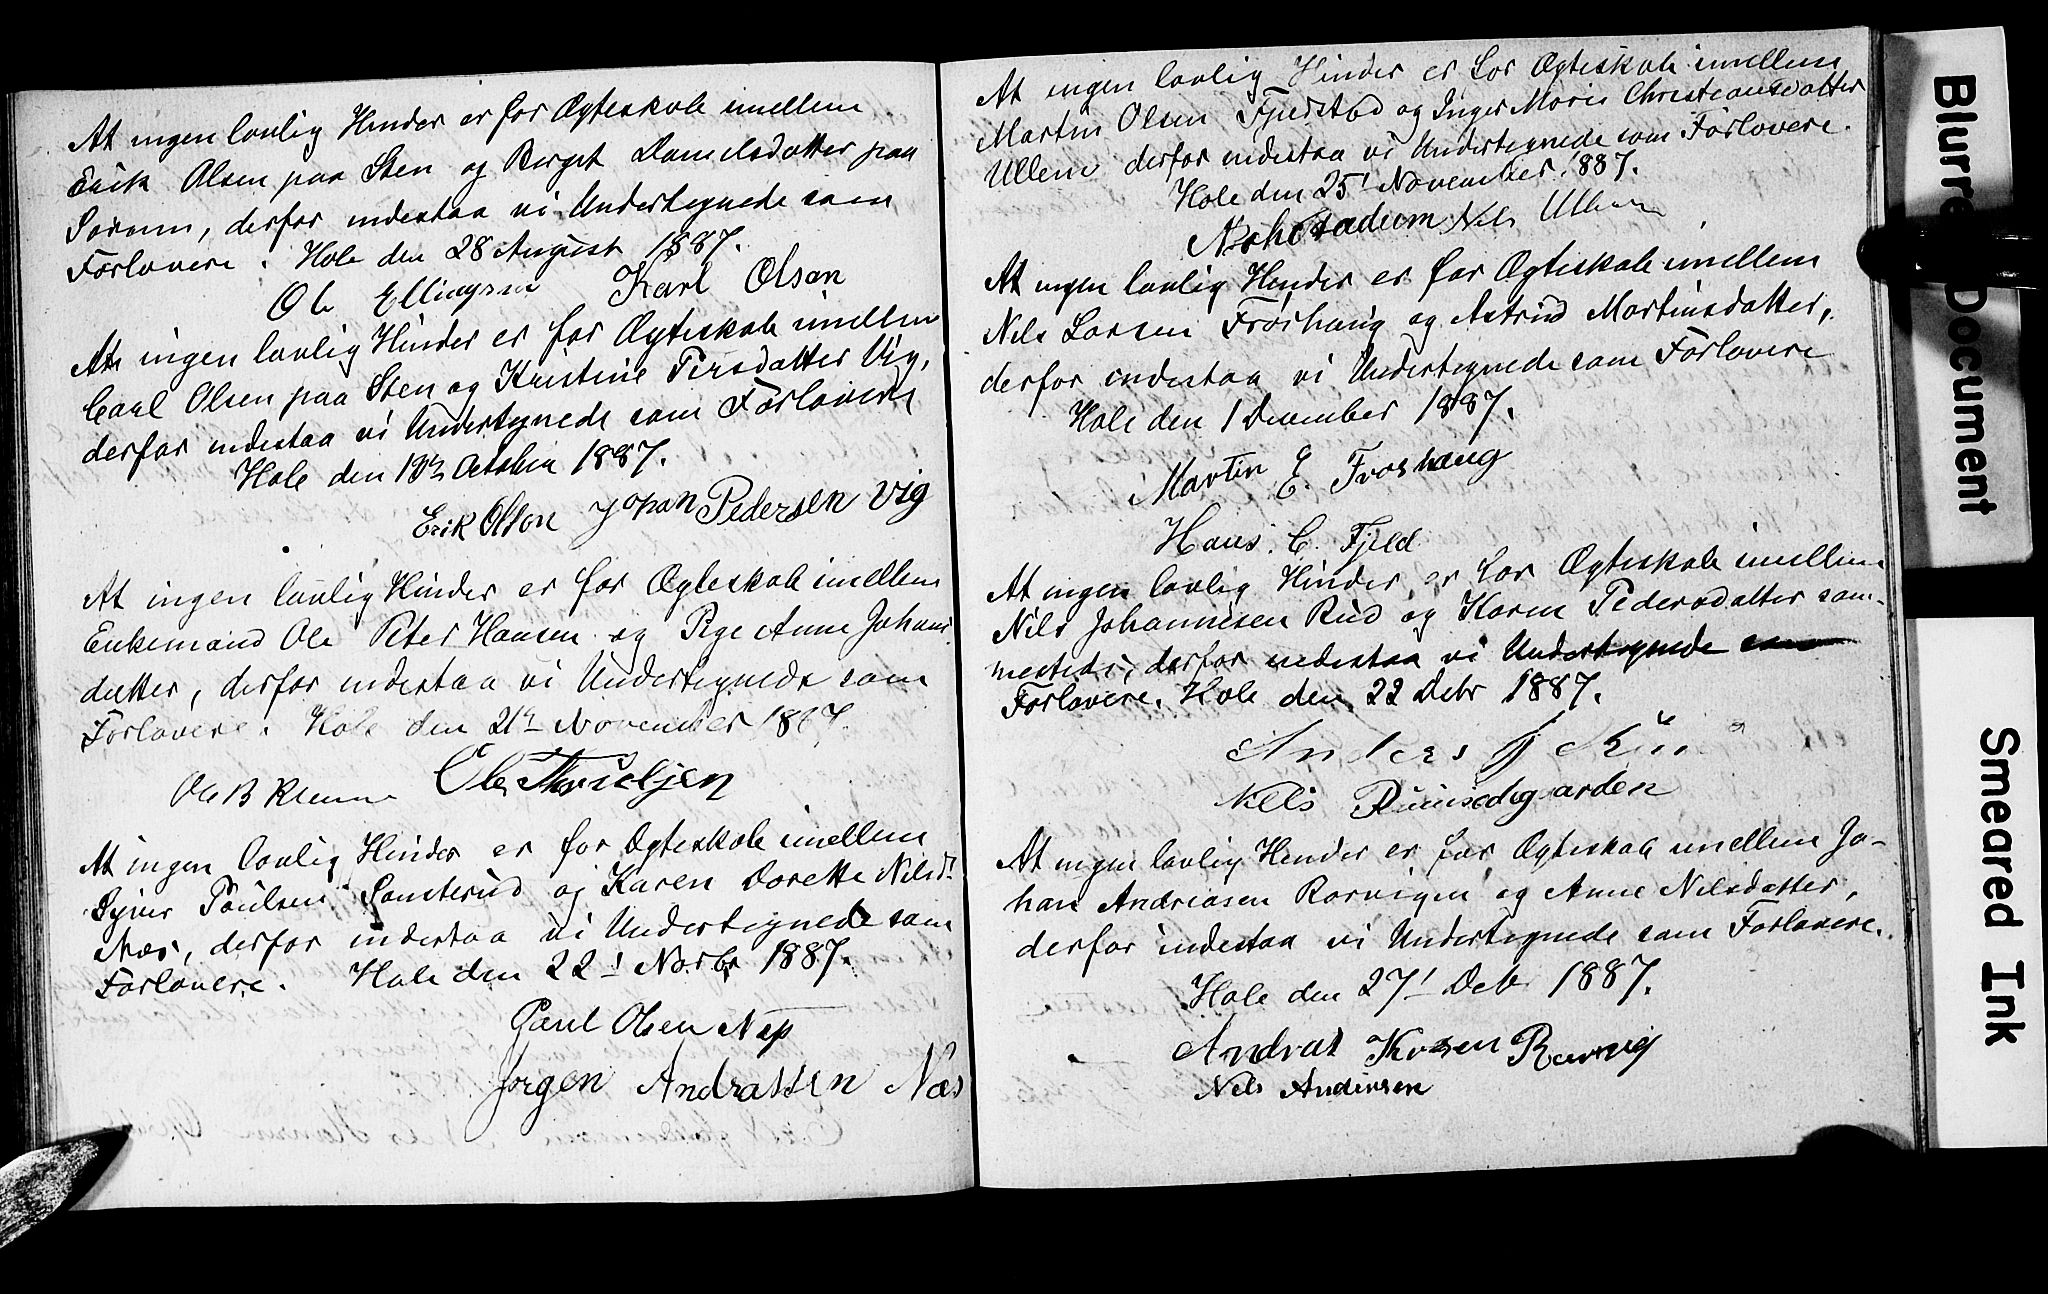 At ingen lovlig Hinder er for Ægteskab imellem
Erik Olsen paa Sten og Berget Danielsdatter paa
Sørum, derfor indestaa vi Undertegnede som
Forlovere. Hole den 28 August 1887.
Ole Ellingsen Karl Olsen
At ingen lovlig Hinder er for Ægteskab imellem
Carl Olsen paa Sten og Kristine Persdatter Vig,
derfor indestaa vi Undertegnede som Forlovere
Hole den October 1887.
Erik Olson Johan Pedersen Vig
At ingen lovlig Hinder er for Ægteskab imellem
Enkemand Ole Peter Hansen og Pige Anne Johans
datter, derfor indestaa vi Undertegnede som
Forlovere. Hole den November 1887.
Ole B
At ingen lovlig Hinder er for Ægteskab imellem
Syver Paulsen Sønsterud og Karen Dorette Nilsd.
Næs, derfor indestaa vi Undertegnede som
Forlovere. Hole den 22! Novbr 1887.
Paul Olsen Næs
Jørgen Andrassen Næs
At ingen lovlig Hinder er for Ægteskab imellem
Martin Olsen Fjeldstad og Inger Marie Christiansdatter
Ullern derfor indestaa vi Undertegnede som Forlovere.
Hole den 25! November 1887.
Stadum Nils Ullern
At ingen lovlig Hinder er for Ægteskab imellem
Nils Larsen Frøshaug og Astrid Martinsdatter,
derfor indestaa vi Undertegnede som Forlovere
Hole den 1 December 1887.
Martin E. Frøshaug
Hans. C. Fjeld
At ingen lovlig Hinder er for Ægteskab imellem
Nils Johannesen Rud og Karen Pedersdatter sam-
mesteds, derfor indestaa vi Undertegnede som
Forlovere. Hole den 22 Debr 1887.
Anders J
Nels
At ingen lovlig Hinder er for Ægteskab imellem Jo-
han Andreasen Rørvigen og Anne Nilsdatter,
derfor indestaa vi Undertegnede som Forlovere.
Hole den 27! Deb 1887.
Nels Andersen
Blurred Document
Smeared Ink